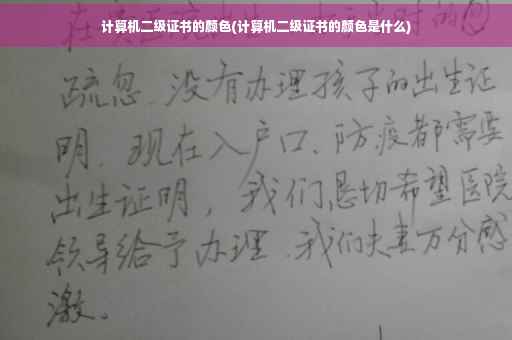 计算机二级证书的颜色(计算机二级证书的颜色是什么)
疏忽、没有办理孩子的出生证
明、现在入户口、防疫都需要
出生证明，我们恳切希望医院
领导给予办理、我们夫妻万分感
激。